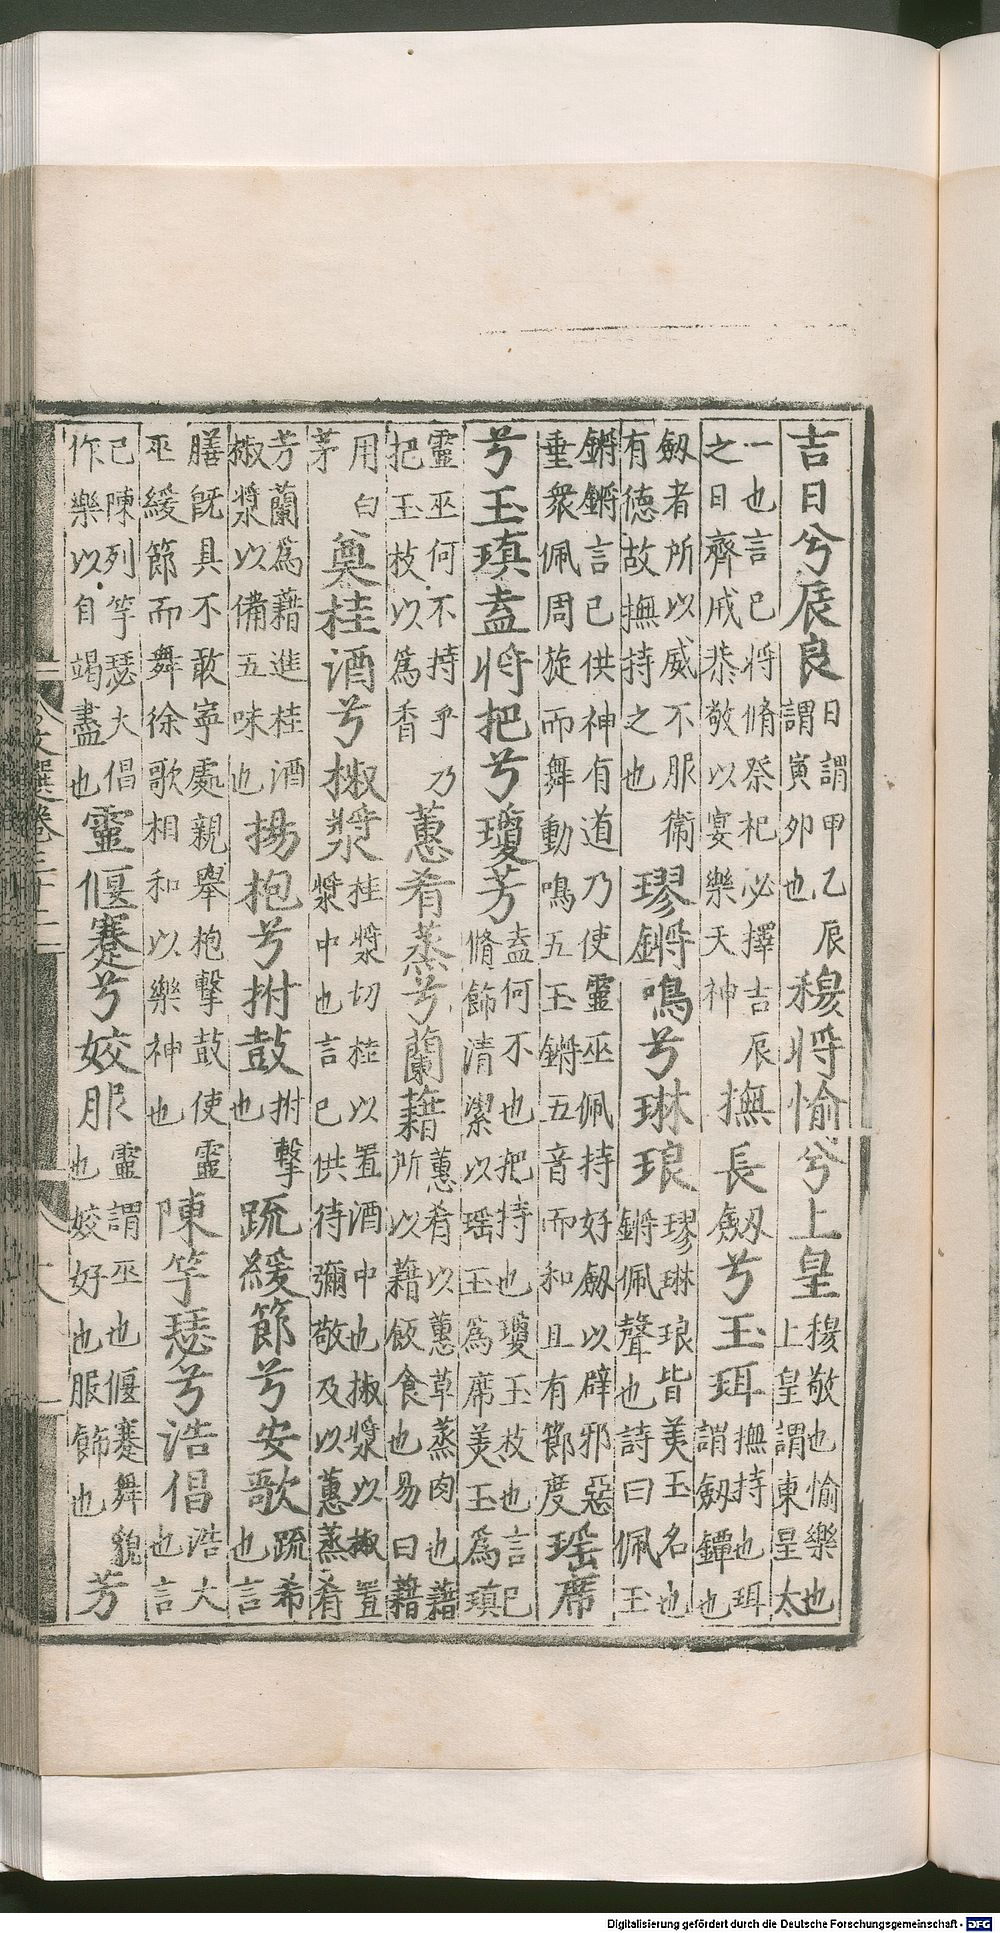 吉日兮辰良日謂甲乙辰謂寅夘也穆將愉兮上皇穆敬也愉樂也上皇謂東皇太
一也言己將脩祭祀必擇吉辰之日齊戒恭敬以宴樂天神撫長劔兮玉珥撫持也珥謂劔鐔也
劔者所以威不服衛有德故撫持之也璆鏘鳴兮琳琅璆琳琅皆美玉名也鏘佩聲也詩曰佩玉
鏘鏘言己供神有道乃使靈巫佩持好劔以辟邪惡垂衆佩周旋而舞動鳴五玉鏘五音而和且有節度瑶席
兮玉瑱盍將把兮瓊芳盍何不也把持也瓊玉枝也言己脩飾清潔以瑶玉為席美玉為瑱
靈巫何不持乎乃把玉枝以為香蕙肴蒸兮蘭藉蕙肴以蕙草蒸肉也藉所以藉飯食也易曰藉
用白茅奠桂酒兮椒漿桂漿切桂以置酒中也椒漿以椒置漿中也言己供待彌敬及以蕙蒸肴
芳蘭為藉進桂酒椒漿以備五味也揚枹兮拊鼓拊擊也疏緩節兮安歌疏希也言
膳旣具不敢寧處親舉枹擊鼓使靈巫緩節而舞徐歌相和以樂神也陳竽瑟兮浩倡浩大也言
己陳列竽瑟大倡作樂以自竭盡也靈偃蹇兮姣服靈謂巫也偃蹇舞貌也姣好也服飾也芳
文選卷三十二
Digitalisierung gefördert durch die Deutsche Forschungsgemeinschaft - DFG